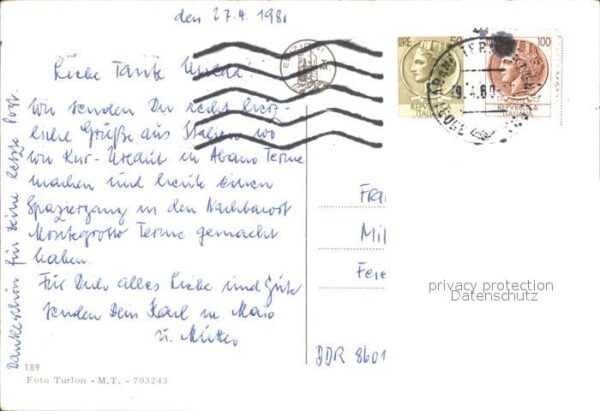 den 27.4.1980
Liebe Tante
Wir senden Dir recht herz-
liche Grüße aus Italien wo
wir Kur-Urlaub in Abano Terme
machen und heute einen
Spaziergang in den Nachbarort
Montegrotto Terme gemacht
haben.
Für Dich alles Liebe und Gute
senden Dein Karl
u. Mutter
Dankeschön für Deine letzte Post.
189
Foto Turlon - M.T. - 793243
LIRE 50
100
REPUBBLICA ITALIANA
Mil
Feie
DDR 8601
privacy protection
Datenschutz